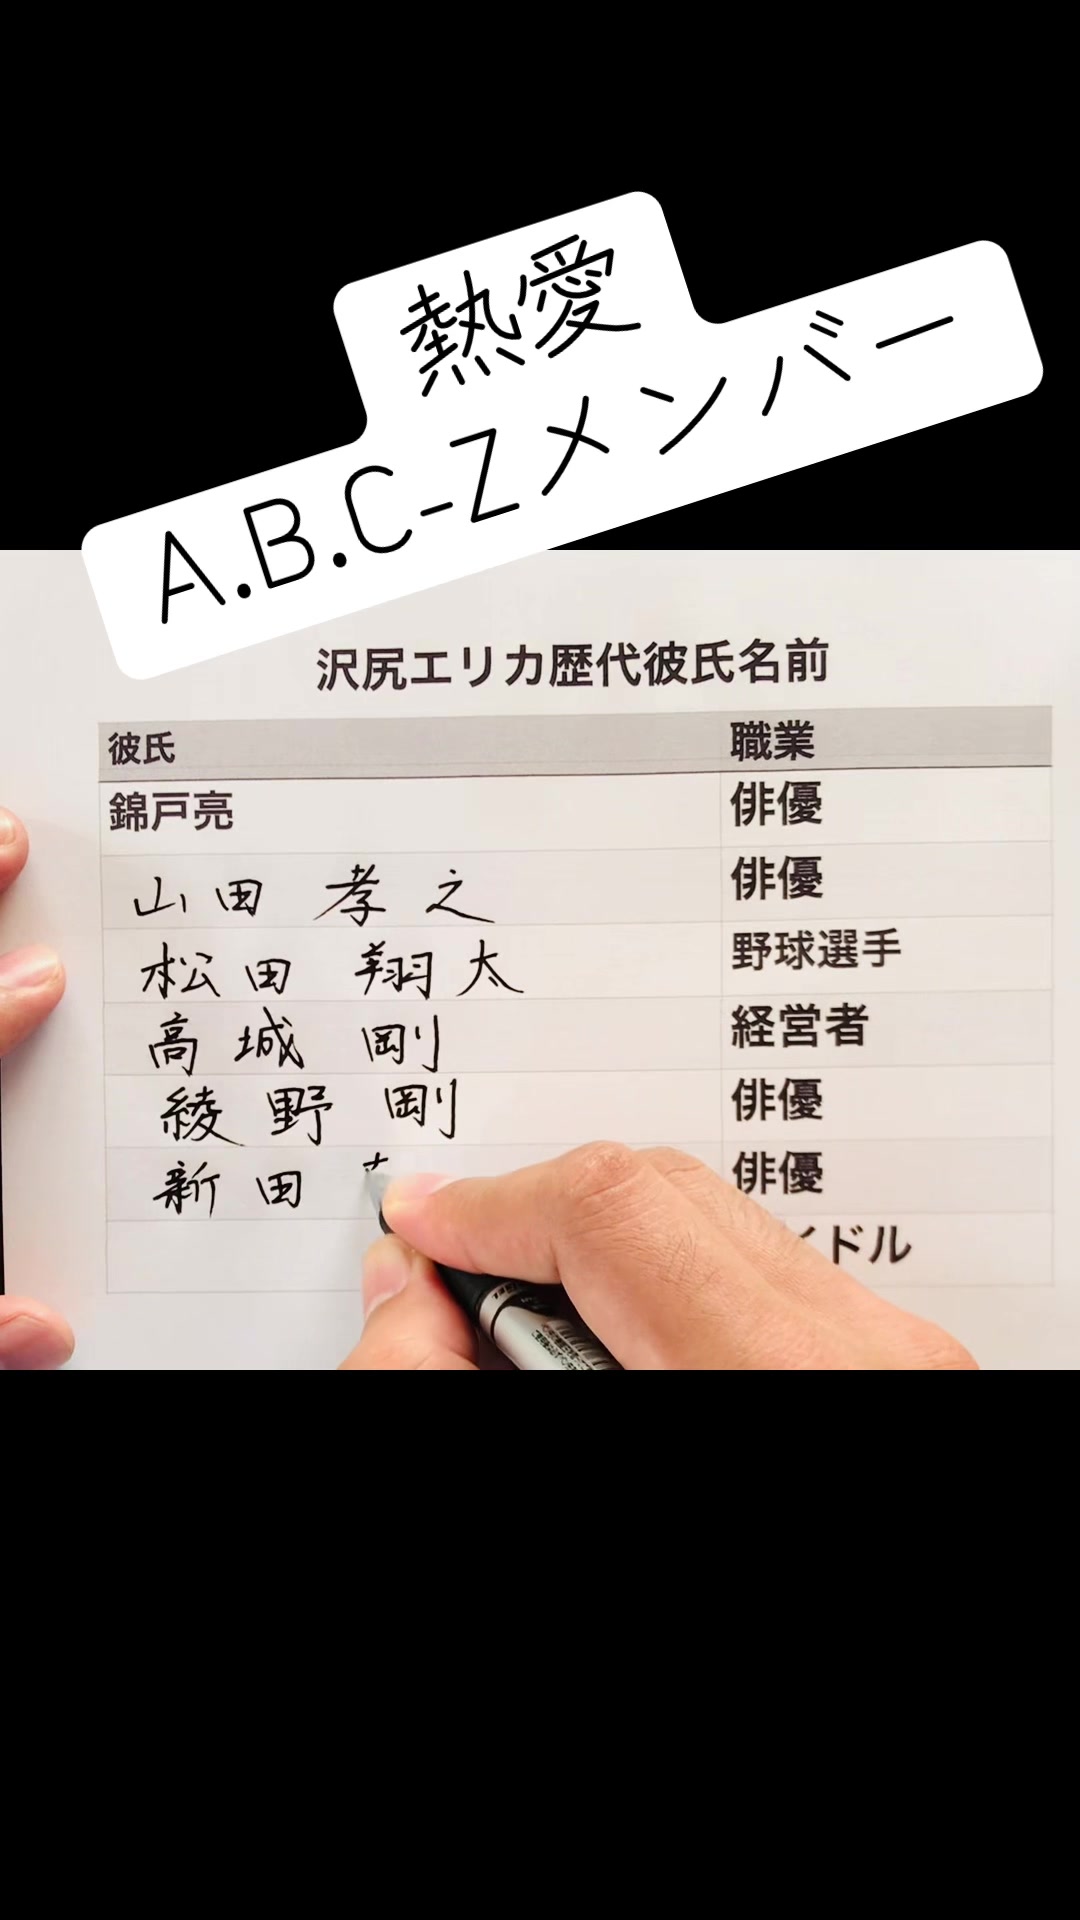 熱愛
A.B.C-Zメンバー
沢尻エリカ歴代彼氏名前
彼氏 職業
錦戸亮 俳優
山田 孝之 俳優
松田 翔太 野球選手
高城 剛 経営者
綾野 剛 俳優
新田 俳優
ドル